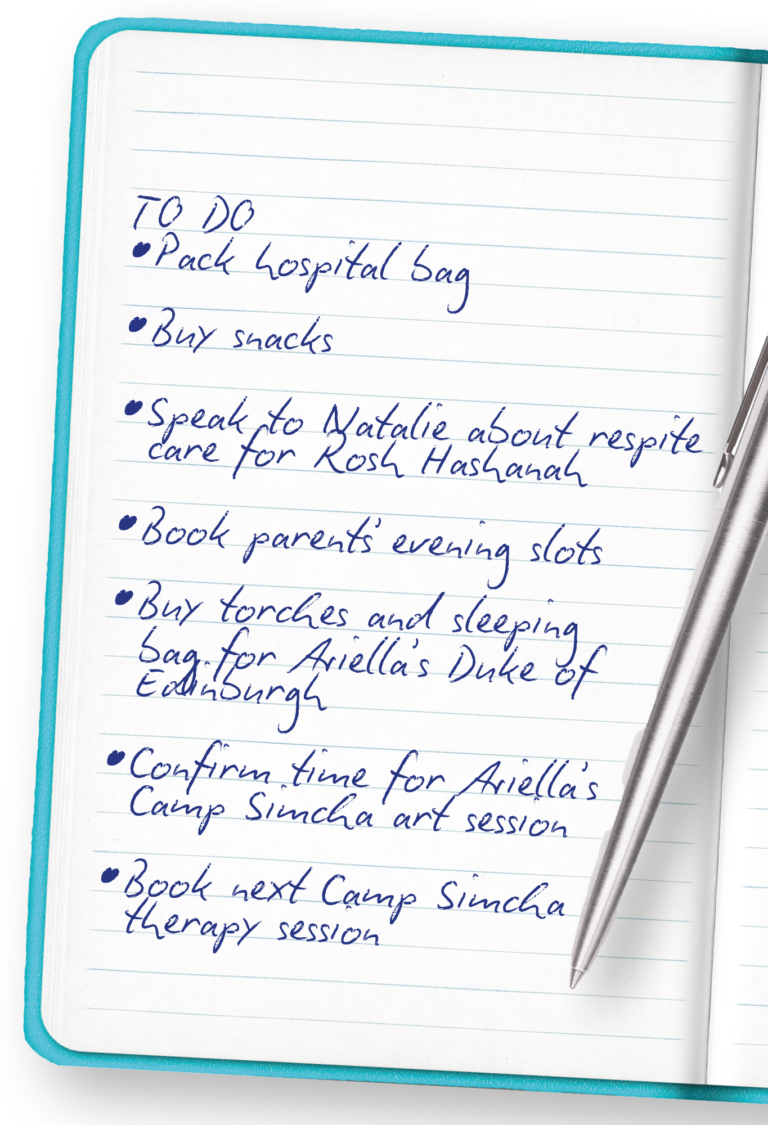 TO DO
•Pack hospital bag
•Buy snacks
•Speak to Natalie about respite
care for Rosh Hashanah
•Book parents' evening slots
•Buy torches and sleeping
bag for Ariella's Duke of
Edinburgh
•Confirm time for Ariella's
Camp Simcha art session
•Book next Camp Simcha
therapy session